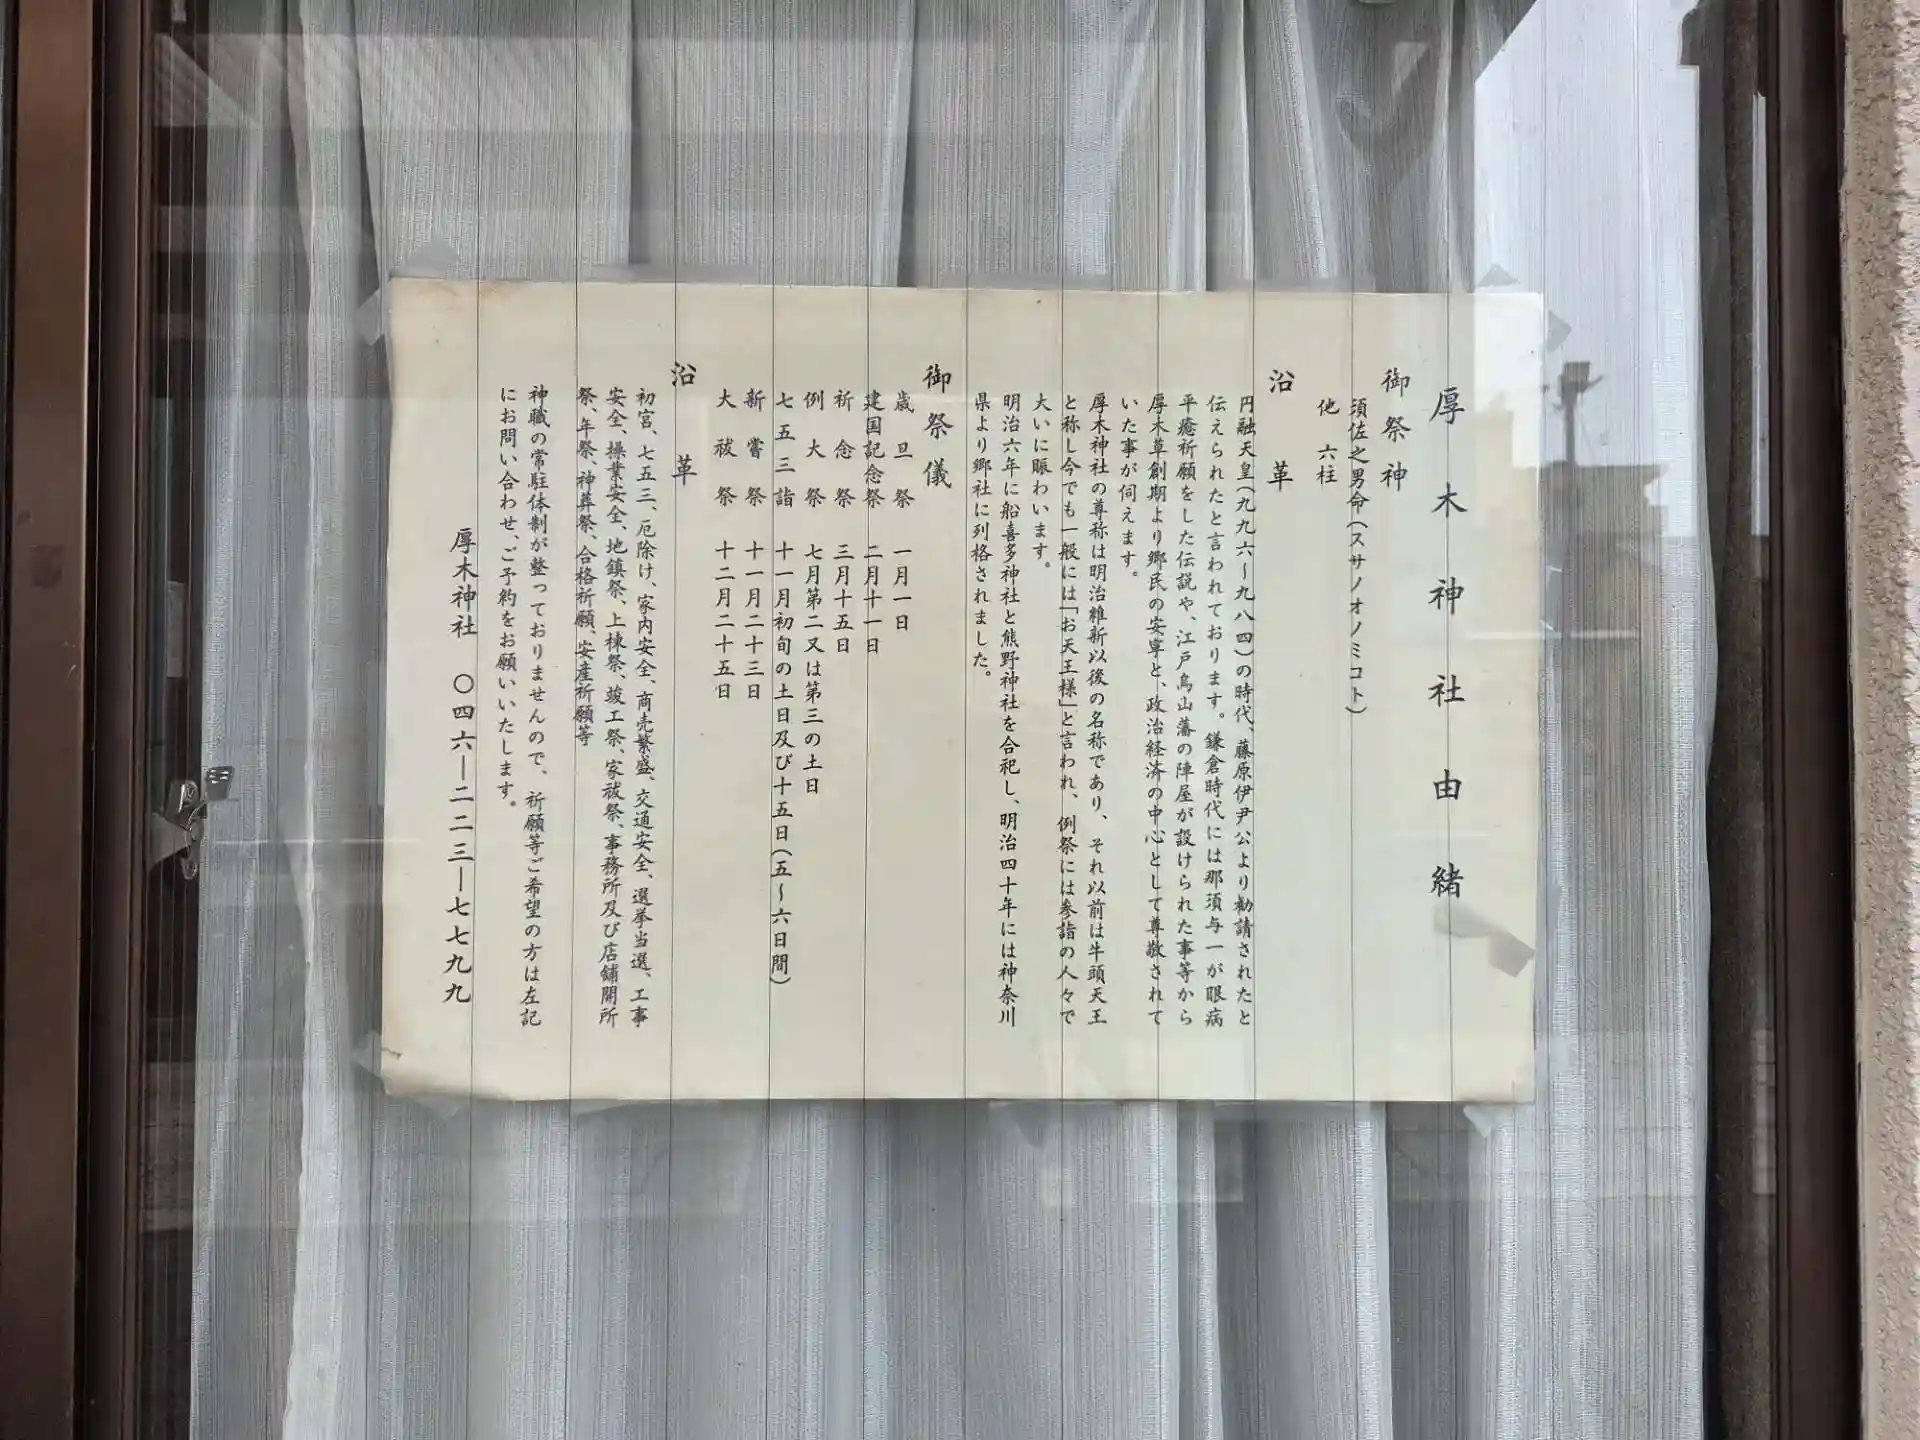 厚木神社由緒
御祭神
須佐之男命(スサノオノミコト)
他 六柱
沿革
円融天皇(九九六〜九八四)の時代、藤原伊尹公より勧請されたと
伝えられたと言われております。鎌倉時代には那須与一が眼病
平癒祈願をした伝説や、江戸烏山藩の陣屋が設けられた事等から
厚木草創期より郷民の安寧と、政治経済の中心として尊敬されて
いた事が伺えます。
厚木神社の尊称は明治維新以後の名称であり、それ以前は牛頭天王
と称し今でも一般には「お天王様」と言われ、例祭には参詣の人々で
大いに賑わいます。
明治六年に船喜多神社と熊野神社を合祀し、明治四十年には神奈川
県より郷社に列格されました。
御祭儀
歳旦祭 一月一日
建国記念祭 二月十一日
祈念祭 三月十五日
例大祭 七月第二又は第三の土日
七五三詣 十一月初旬の土日及び十五日(五〜六日間)
新嘗祭 十一月二十三日
大祓祭 十二月二十五日
沿革
初宮、七五三、厄除け、家内安全、商売繁盛、交通安全、選挙当選、工事
安全、操業安全、地鎮祭、上棟祭、竣工祭、家祓祭、事務所及び店舗開所
祭、年祭、神葬祭、合格祈願、安産祈願等
神職の常駐体制が整っておりませんので、祈願等ご希望の方は左記
にお問い合わせ、ご予約をお願いいたします。
厚木神社 〇四六ー二二三ー七七九九